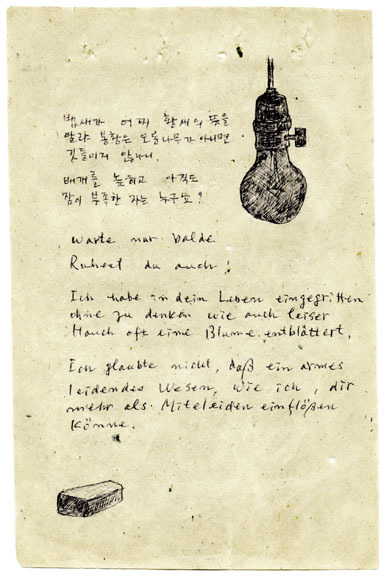 뱁새가 어찌 황새의 뜻을
알랴 봉황은 오동나무가 아니면
깃들이지 않나니.
배개를 높히고 아직도
잠이 부족한 자는 누구뇨?
warte nur balde
Ruhest du auch!
Ich habe in dein Leben eingegritten
ohne zu denken wie auch leiser
Hauch oft eine Blume entblättert.
Ich glaubte nicht, daß ein armes
leidendes Wesen, wie ich, dir
mehr als Miteleiden einflößen
könne.